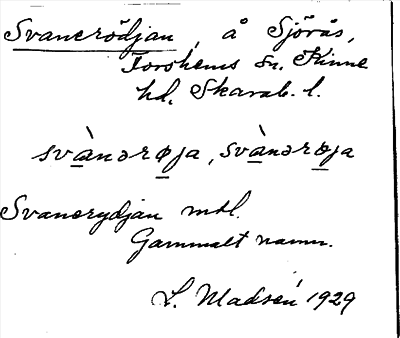 Svanerödjan, å Sjörås,
Forshems sn. Kinne
hd. Skarab. l.
svànərøja, svànərøja
Svanerydjan mdl.
Gammalt namn.
L. Madsén 1929